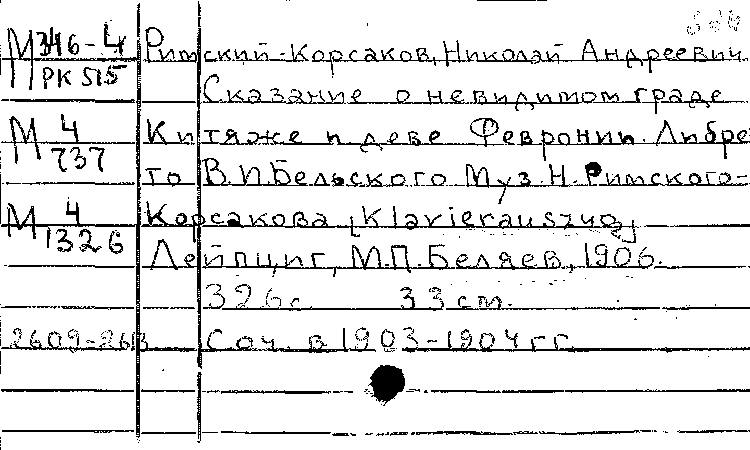 М 346-4 Римский-Корсаков, Николай Андреевич
РК 515
Сказание о невидимом граде
М 4 Китяже и деве Февронии. Либре-
737
то В.И.Бельского Муз. Н. Римского-
М 4 Корсакова [Klavierauszug]
1326
Лейпциг, М.П.Беляев, 1906.
326с. 33 см.
Соч. в 1903-1904 гг.